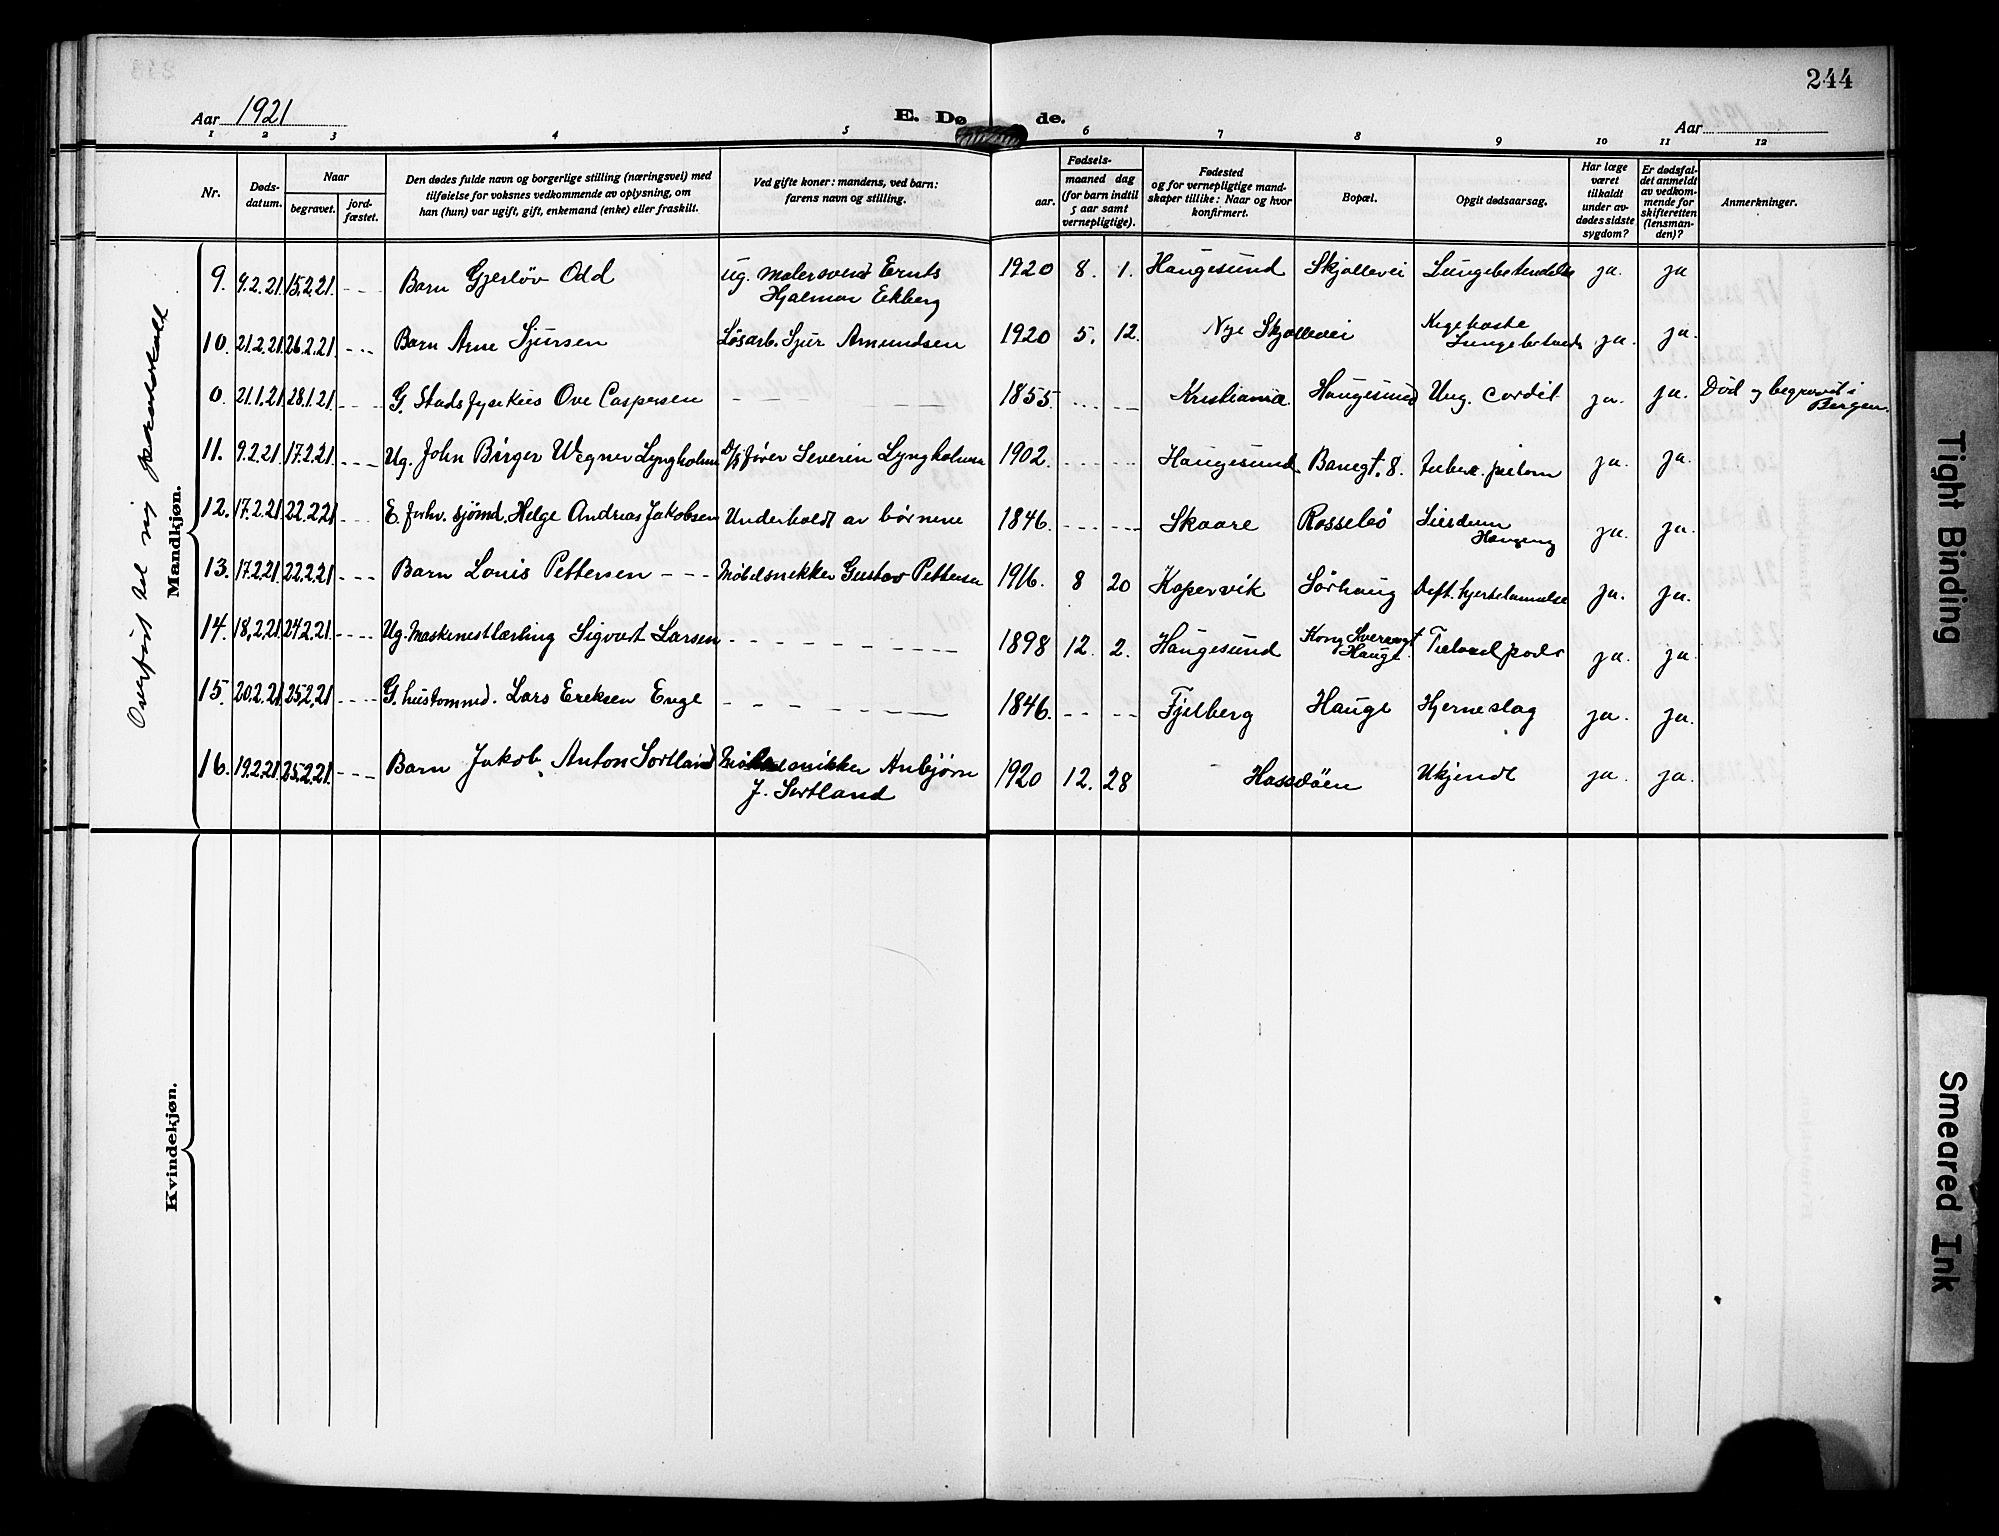 244
Aar 1921
E. Dø de.
Aar
1 2 3 4 5 6 7 8 9 10 11 12
Nr.
Døds-datum.
Naar
begravet.
jord-fæstet.
Den dødes fulde navn og borgerlige stilling (næringsvei) med
tilføielse for voksnes vedkommende av oplysning, om
han (hun) var ugift, gift, enkemand (enke) eller fraskilt.
Ved gifte koner: mandens, ved barn:
farens navn og stilling.
Fødsels-
aar.
maaned dag
(for barn indtil
5 aar samt
vernepligtige).
Fødested
og for vernepligtige mand-
skaper tillike: Naar og hvor
konfirmert.
Bopæl.
Opgit dødsaarsag.
Har læge
været
tilkaldt
under av-
dødes sidste
sygdom?
Er dødsfal-
det anmeldt
av vedkom-
mende for
skifteretten
(lensman-
den)?
Anmerkninger.
Overført til ny protokoll
Mandkjøn.
9. 9.2.21 15.2.21. - - - Barn Gjerløv Odd Ug. malersvend Ernts 1920 8. 1. Haugesund Skjollevei Lungebetendelse ja. ja
Hjalmar Eekberg
10. 21.2.21 26.2.21 - - - Barn Arne Sjursen Løsarb. Sjur Amundsen 1920 5. 12. Nye Skjollevei Kighoste ja. ja.
0. 21.1.21 28.1.21 - - - G. Stadsfysikus Ove Caspersen - - - 1855. - - - Kristiania Haugesund Ung. cordit ja. ja. Død og begravet i
Bergen.
11. 9.2.21 17.2.21 - - - Ug. John Birger Wegner Lyngholm D/S fører Severin Lyngholm 1902. - - - Haugesund Banegt. 8. ja. ja.
12. 17.2.21 22.2.21 - - - E. forhv. sjømd. Helge Andreas Jakobsen Underholdt av børnene 1846. - - - Skaare Rossebø ja. ja.
13. 17.2.21 22.2.21 - - - Barn Louis Pettersen - - - Møbelsnekker Gustav Pettersen 1916. 8 20 Kopervik Sørhaug Deft. hjertelammelse ja. ja.
14. 18.2.21 24.2.21 - - - Ug. Maskinistlærling Sigvart Larsen - - - 1898 12. 2. Haugesund Kong Sverresgt ja. ja.
Hauge.
15. 20.2.21 25.2.21 - - - G. hustommd. Lars Eriksen Enge - - - 1846. - - - Fjelberg Hauge Hjerneslag ja. ja.
16. 19.2.21 25.2.21 - - - Barn Jakob Anton Sortland Møbelsnikker Anbjørn 1920 12. 28 Hassøen Ukjendt ja. ja.
J. Sortland
Kvindekjøn.
Tight Binding
Smeared Ink